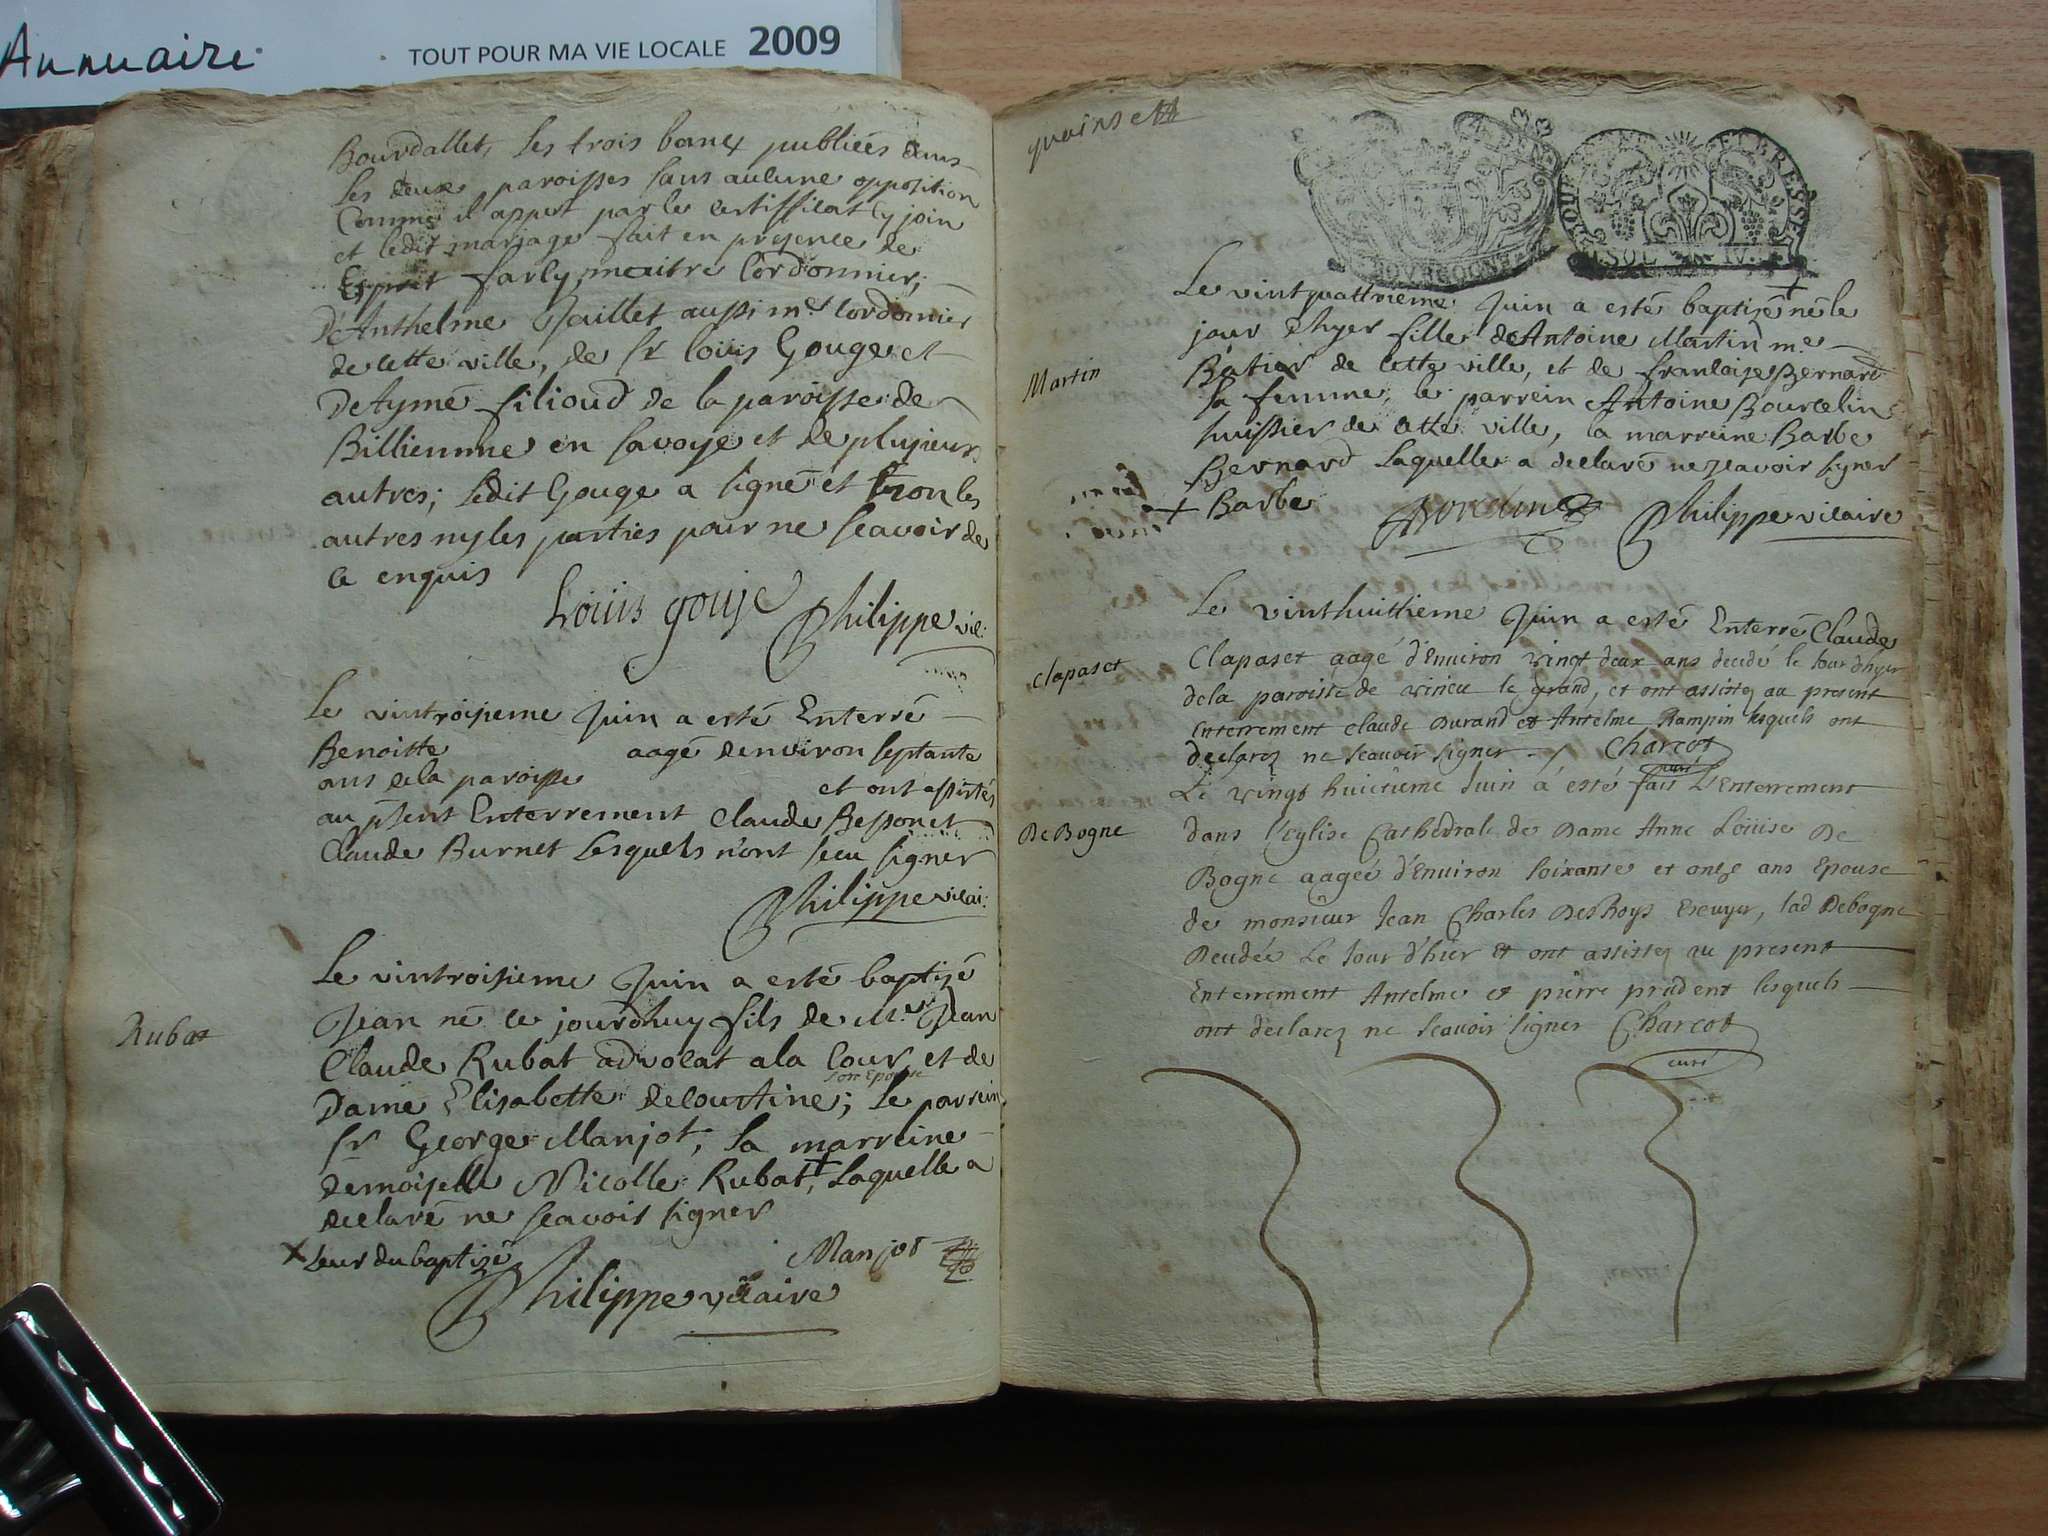 Annuaire
TOUT POUR MA VIE LOCALE 2009
Bourdallet, les trois bancz publiées dans
les deux paroisses sans aulcune opposition
Comme il appert par le certifficat cy join
et ledit mariage fait en presence de
Esprit farly, maitre Cordonnier,
D'Anthelme Jaillet aussi me Cordonnier
de cette ville, de sr loüis Gouge et
De Aymé filioud de la paroisse de
Billiemme en savoye et de plusieurs
autres; ledit Gouge a signé et non les
autres ny les parties pour ne sçavoir de
ce enquis
Loüis gouje Philippe vic:
Le vintroisieme Juin a esté Enterré
Benoitte aagé denviron septante
ans de la paroisse et ont assistés
au pñent Enterrement Claude Bessonet
Claude Burnet Lesquels n'ont sceu signer
Philippe vicai:
Rubat
Le vintroisieme Juin a esté baptisé
Jean né ce jourdhuy fils de Mr Jean
Claude Rubat advocat a la Cour et de
son Epouse
Dame Elisabette decoustine; le parrein
sr George Manjot, la marreine
demoiselle Nicolle Rubat + Laquelle a
declaré ne sçavoir signer
x seur du baptizé Manjot
Philippe vicaire
quinse
BOURGOGNE
ET BRESSE
SOL
IV.
Martin
Le vintquattrieme Juin a esté baptisé né le +
jour d'hyer fille de Antoine Martin me
Bâtier de cette ville, et de francoise Bernard
sa femme, le parrein Antoine Bourcelin
huissier de cette ville, la marreine Barbe
Bernard laquelle a declaré ne sçavoir signer
+ Barbe Borcelin Philippe vicaire
Clapaset
Le vinthuittieme Juin a esté Enterré Claude
Clapaset aagé d'Enuiron vingt deux ans decedé le Iour d'hyer
de la paroisse de virieu le grand, et ont assistez au present
Enterrement Claude Durand et Antelme Rampin lesquels ont
declarez ne sçauoir signer Charcot
curé
De Bogne
Le vingt huictieme Iuin à esté fait l'Enterrement
dans l'Eglise Cathedrale de Dame Anne Loüise De
Bogne aagée d'Enuiron soixante et onze ans Epouse
de monsieur Jean Charles Des Roys Ecuyer, lad Debogne
Decedée Le Iour d'hier Et ont assistez au present
Enterrement Antelme et pierre prudent lesquels
ont declarez ne sçauoir signer Charcot
curé